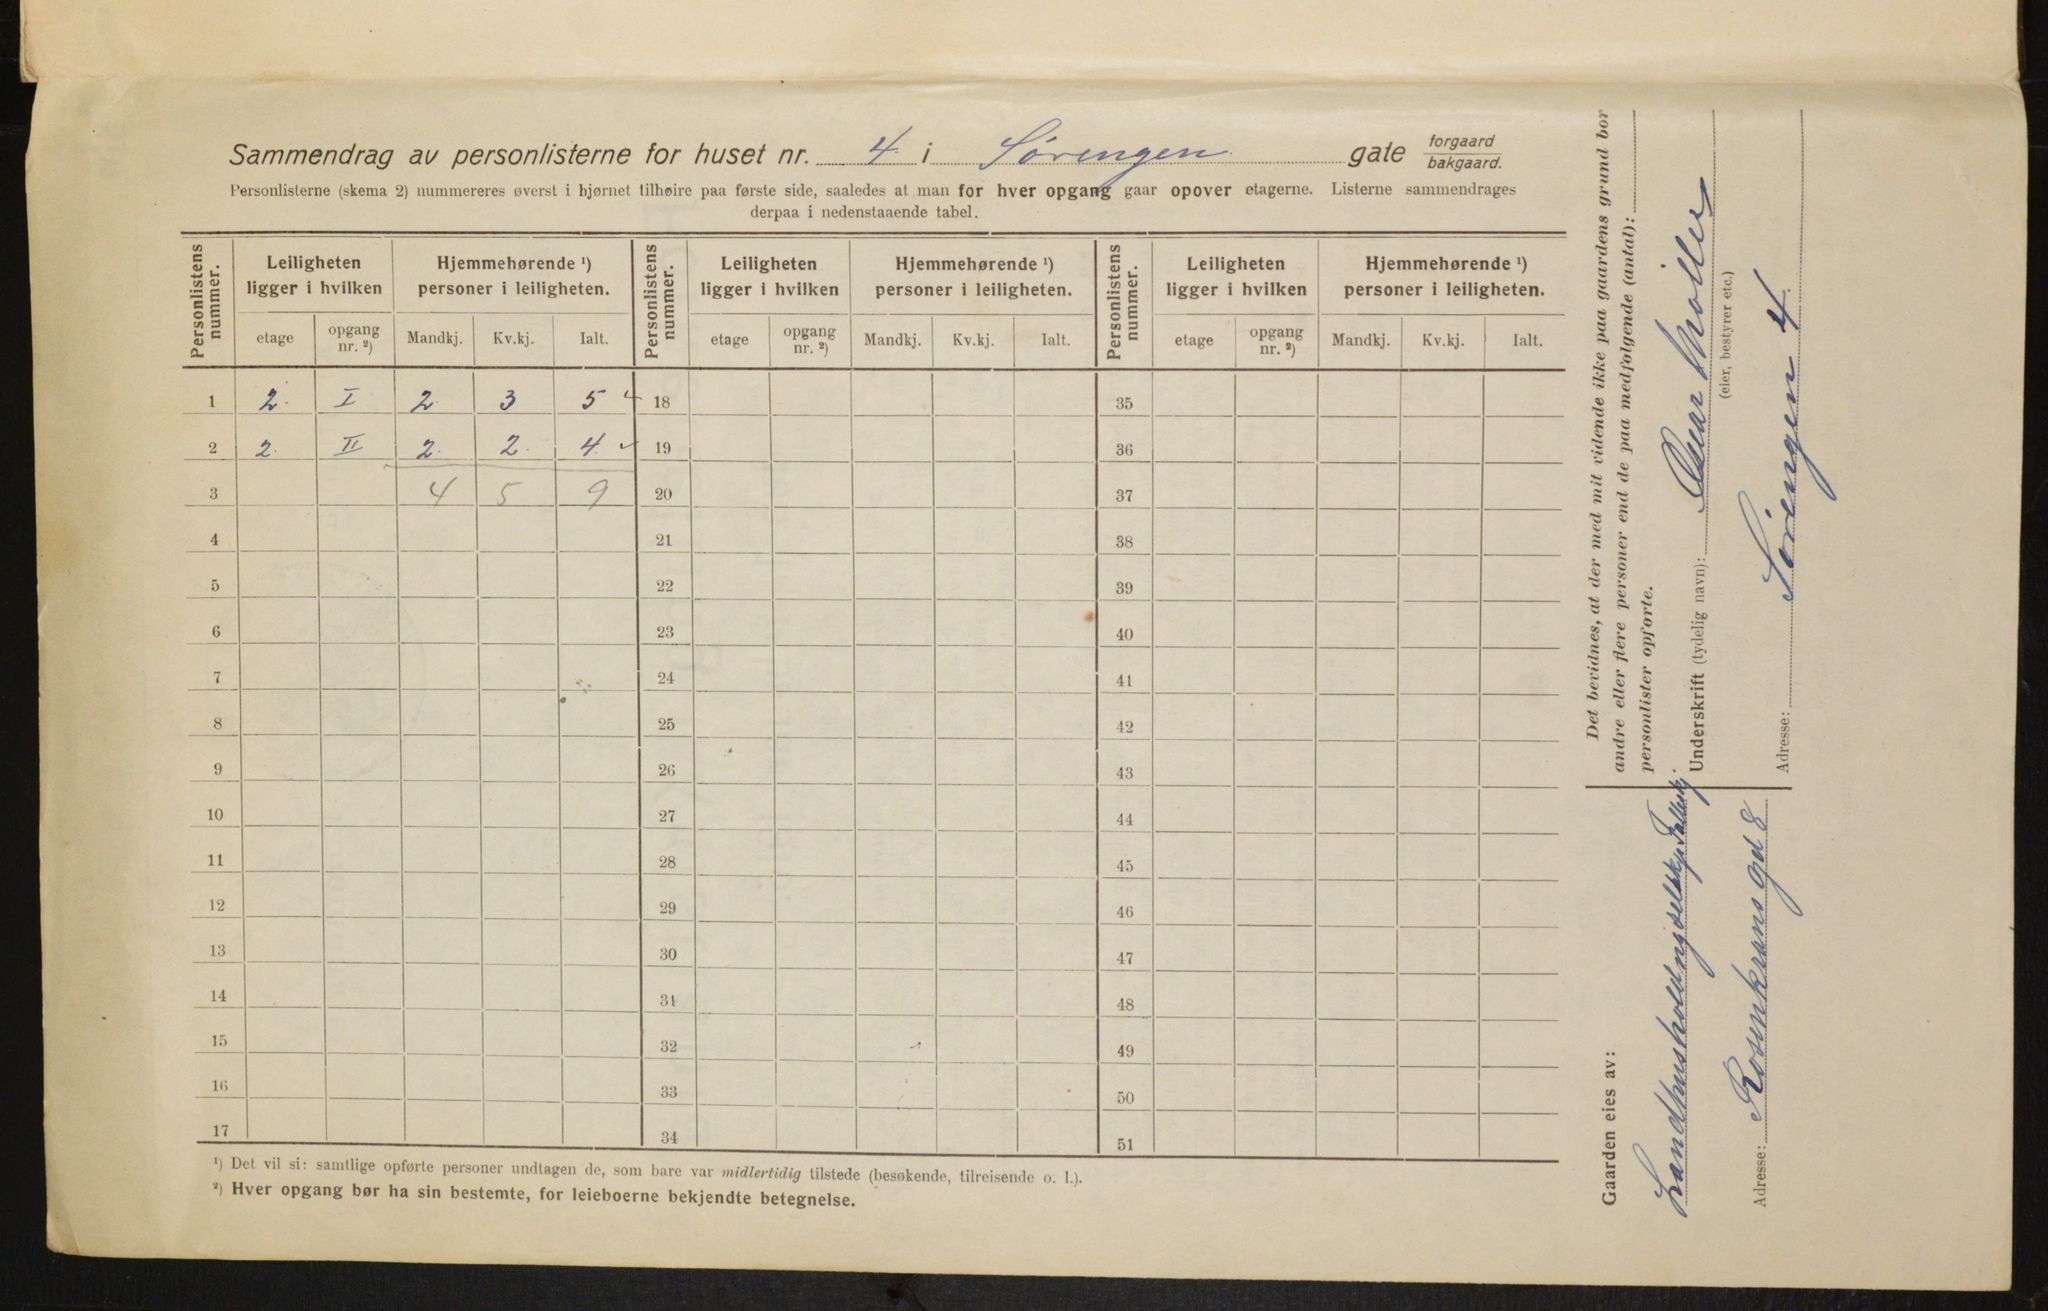 Sammendrag av personlisterne for huset nr. 4 i Sørengen gate forgaard
bakgaard.
Personlisterne (skema 2) nummereres øverst i hjørnet tilhøire paa første side, saaledes at man for hver opgang gaar opover etagerne. Listerne sammendrages
derpaa i nedenstaaende tabel.
Personlistens nummer. Leiligheten ligger i hvilken Hjemmehørende ¹) personer i leiligheten. Personlistens nummer. Leiligheten ligger i hvilken Hjemmehørende ¹) personer i leiligheten. Personlistens nummer. Leiligheten ligger i hvilken Hjemmehørende ¹) personer i leiligheten.
etage opgang nr. ²) Mandkj. Kv.kj. Ialt. etage opgang nr. ²) Mandkj. Kv.kj. Ialt. etage opgang nr. ²) Mandkj. Kv.kj. Ialt.
1 2. I 2 3 5 18 35
2 2. II 2. 2. 4. 19 36
3 4 5 9 20 37
4 21 38
5 22 39
6 23 40
7 24 41
8 25 42
9 26 43
10 27 44
11 28 45
12 29 46
13 30 47
14 31 48
15 32 49
16 33 50
17 34 51
¹) Det vil si: samtlige opførte personer undtagen de, som bare var midlertidig tilstede (besøkende, tilreisende o. l.).
²) Hver opgang bør ha sin bestemte, for leieboerne bekjendte betegnelse.
Det bevidnes, at der med mit vidende ikke paa gaardens grund bor
andre eller flere personer end de paa medfølgende (antal):
personlister opførte.
Underskrift (tydelig navn): Møller
(eier, bestyrer etc.)
Adresse: Sørengen 4
Gaarden eies av:
Adresse: Rosenkransgd 8